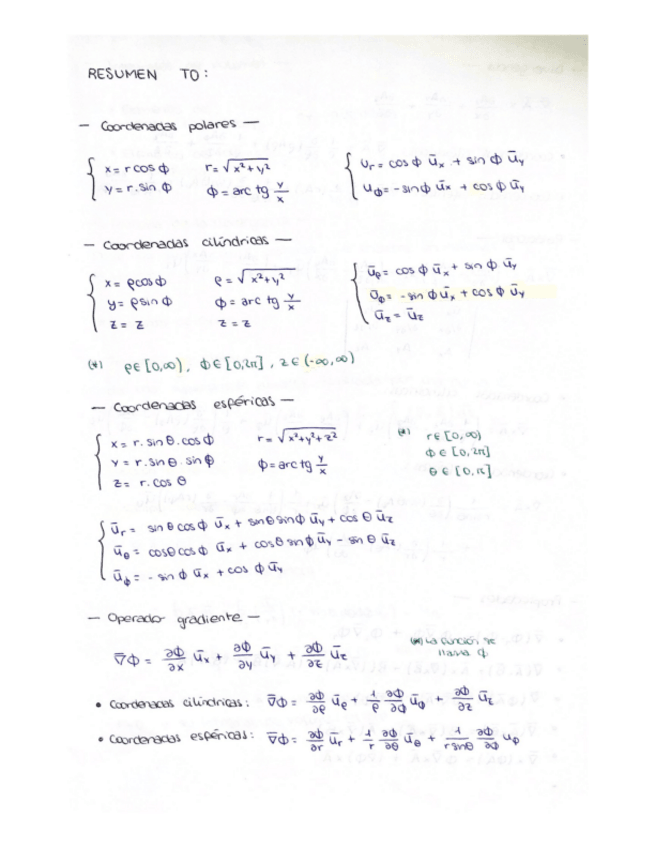 RESUMEN TO:
— Coordenadas polares —
x = r cos ϕ
y = r. sin ϕ
r = √x²+y²
ϕ = arc tg y/x
ūr = cos ϕ ūx + sin ϕ ūy
uϕ = - sin ϕ ūx + cos ϕ ūy
— Coordenadas cilíndricas —
x = ρcos ϕ
y = ρ sin ϕ
z = z
ρ = √x²+y²
ϕ = arc tg y/x
z = z
ūρ = cos ϕ ūx + sin ϕ ūy
ūϕ = - sin ϕ ūx + cos ϕ ūy
ūz = ūz
(*) ρ ∈ [0,∞), ϕ ∈ [0,2π], z ∈ (-∞,∞)
— Coordenadas esféricas —
x = r. sin θ. cos ϕ
y = r. sin θ. sin ϕ
z = r. cos θ
r = √x²+y²+z²
ϕ = arc tg y/x
(*) r ∈ [0,∞)
ϕ ∈ [0,2π]
θ ∈ [0,π]
ūr = sin θ cos ϕ ūx + sin θ sin ϕ ūy + cos θ ūz
ūθ = cos θ cos ϕ ūx + cos θ sin ϕ ūy - sin θ ūz
ūϕ = - sin ϕ ūx + cos ϕ ūy
— Operador gradiente —
∇̄ϕ = ∂ϕ/∂x ūx + ∂ϕ/∂y ūy + ∂ϕ/∂z ūz
(*) La función se
llama ϕ
• Coordenadas cilíndricas: ∇̄ϕ = ∂ϕ/∂ρ ūρ + 1/ρ ∂ϕ/∂ϕ ūϕ + ∂ϕ/∂z ūz
• Coordenadas esféricas: ∇̄ϕ = ∂ϕ/∂r ūr + 1/r ∂ϕ/∂θ ūθ + 1/r sinθ ∂ϕ/∂ϕ uϕ